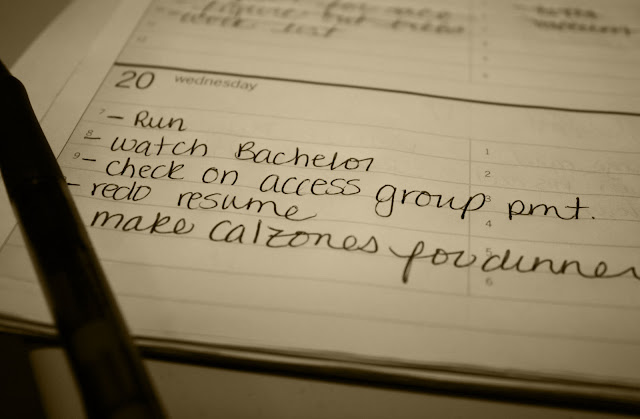 work out
20 wednesday
7 - Run
8 - watch Bachelor
9 - check on access group pmt.
- redo resume
make calzones for dinner
12
1
2
3
4
5
6